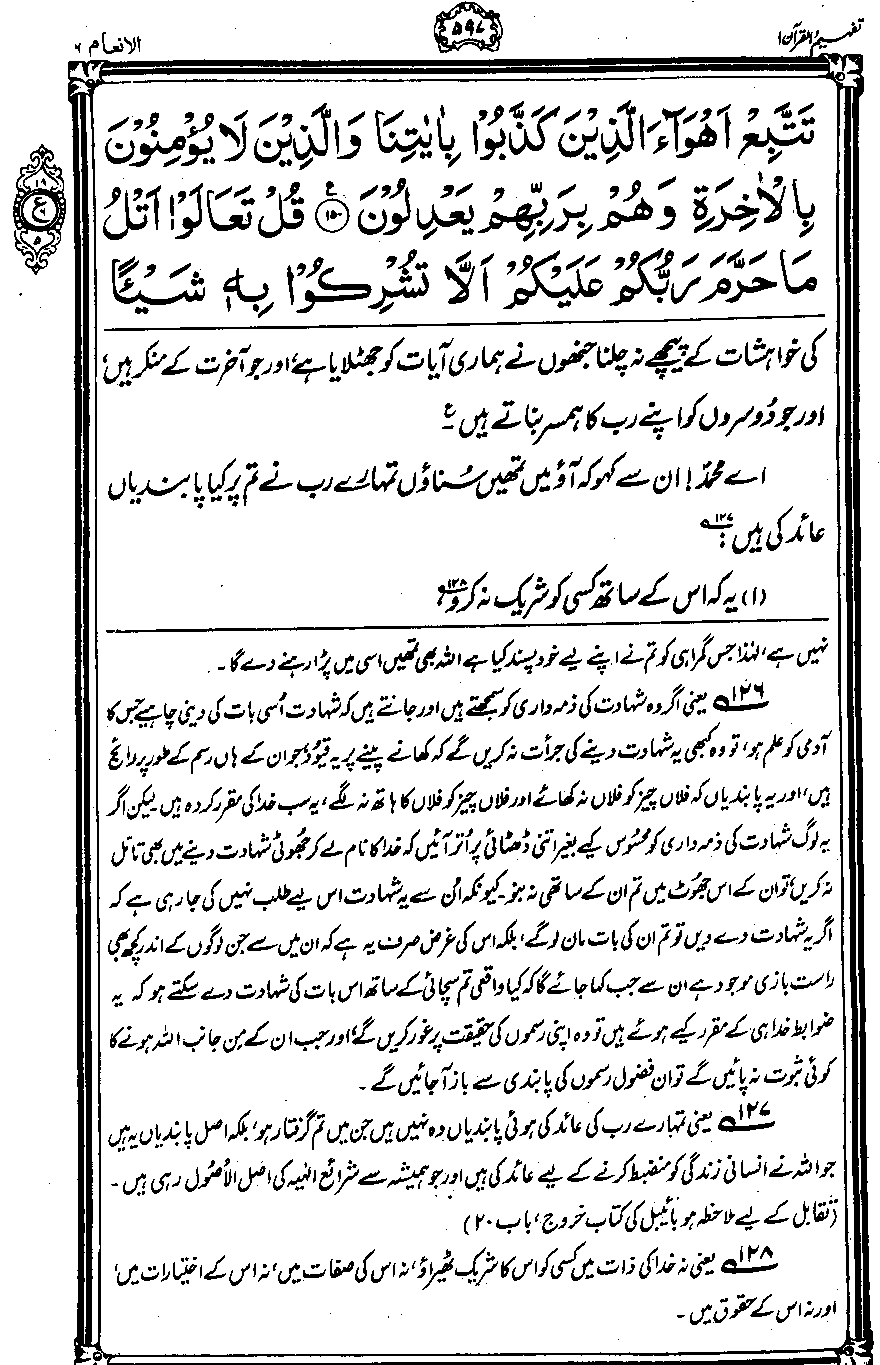 تفہیم القرآن ۱
۵۹۷
الانعام ۶
تَتَّبِعْ اَهْوَآءَ الَّذِيْنَ كَذَّبُوْا بِاٰيٰتِنَا وَالَّذِيْنَ لَا يُؤْمِنُوْنَ
بِالْاٰخِرَةِ وَهُمْ بِرَبِّهِمْ يَعْدِلُوْنَ ۱۵۰ قُلْ تَعَالَوْا اَتْلُ
مَا حَرَّمَ رَبُّكُمْ عَلَيْكُمْ اَلَّا تُشْرِكُوْا بِهٖ شَيْـًٔا
۱۹
ع
۵
کی خواہشات کے پیچھے نہ چلنا جنھوں نے ہماری آیات کو جھٹلایا ہے، اور جو آخرت کے منکر ہیں،
اور جو دُوسروں کو اپنے رب کا ہمسر بناتے ہیں ع
اے محمدؐ! ان سے کہو کہ آؤ میں تمھیں سُناؤں تمہارے رب نے تم پر کیا پابندیاں
عائد کی ہیں۱۲۷:
(۱) یہ کہ اس کے ساتھ کسی کو شریک نہ کرو۱۲۸،
نہیں ہے، لہٰذا جس گمراہی کو تم نے اپنے لیے خود پسند کیا ہے اللہ بھی تمھیں اسی میں پڑا رہنے دے گا۔
۱۲۶ یعنی اگر وہ شہادت کی ذمہ داری کو سمجھتے ہیں اور جانتے ہیں کہ شہادت اُسی بات کی دینی چاہیے جس کا
آدمی کو علم ہو، تو وہ کبھی یہ شہادت دینے کی جرأت نہ کریں گے کہ کھانے پینے پر یہ قیود، جو ان کے ہاں رسم کے طور پر رائج
ہیں، اور یہ پابندیاں کہ فلاں چیز کو فلاں نہ کھائے اور فلاں چیز کو فلاں کا ہاتھ نہ لگے، یہ سب خدا کی مقرر کردہ ہیں۔ لیکن اگر
یہ لوگ شہادت کی ذمہ داری کو محسُوس کیے بغیر اتنی ڈھٹائی پر اُتر آئیں کہ خدا کا نام لے کر جھوٹی شہادت دینے میں بھی تامّل
نہ کریں، تو ان کے اس جھُوٹ میں تم ان کے ساتھی نہ بنو۔ کیونکہ اُن سے یہ شہادت اس لیے طلب نہیں کی جا رہی ہے کہ
اگر یہ شہادت دے دیں تو تم ان کی بات مان لو گے، بلکہ اس کی غرض صرف یہ ہے کہ ان میں سے جن لوگوں کے اندر کچھ بھی
راست بازی موجود ہے ان سے جب کہا جائے گا کہ کیا واقعی تم سچائی کے ساتھ اس بات کی شہادت دے سکتے ہو کہ یہ
ضوابط خدا ہی کے مقرر کیے ہوئے ہیں تو وہ اپنی رسموں کی حقیقت پر غور کریں گے، اور جب ان کے مِن جانب اللہ ہونے کا
کوئی ثبوت نہ پائیں گے تو ان فضول رسموں کی پابندی سے باز آجائیں گے۔
۱۲۷ یعنی تمہارے رب کی عائد کی ہوئی پابندیاں وہ نہیں ہیں جن میں تم گرفتار ہو، بلکہ اصل پابندیاں یہ ہیں
جو اللہ نے انسانی زندگی کو منضبط کرنے کے لیے عائد کی ہیں اور جو ہمیشہ سے شرائع الٰہیہ کی اصل الاُصُول رہی ہیں۔
(تقابل کے لیے ملاحظہ ہو بائیبل کی کتاب خروج، باب ۲۰)
۱۲۸ یعنی نہ خدا کی ذات میں کسی کو اس کا شریک ٹھیراؤ، نہ اس کی صفات میں، نہ اس کے اختیارات میں،
اور نہ اس کے حقوق میں۔